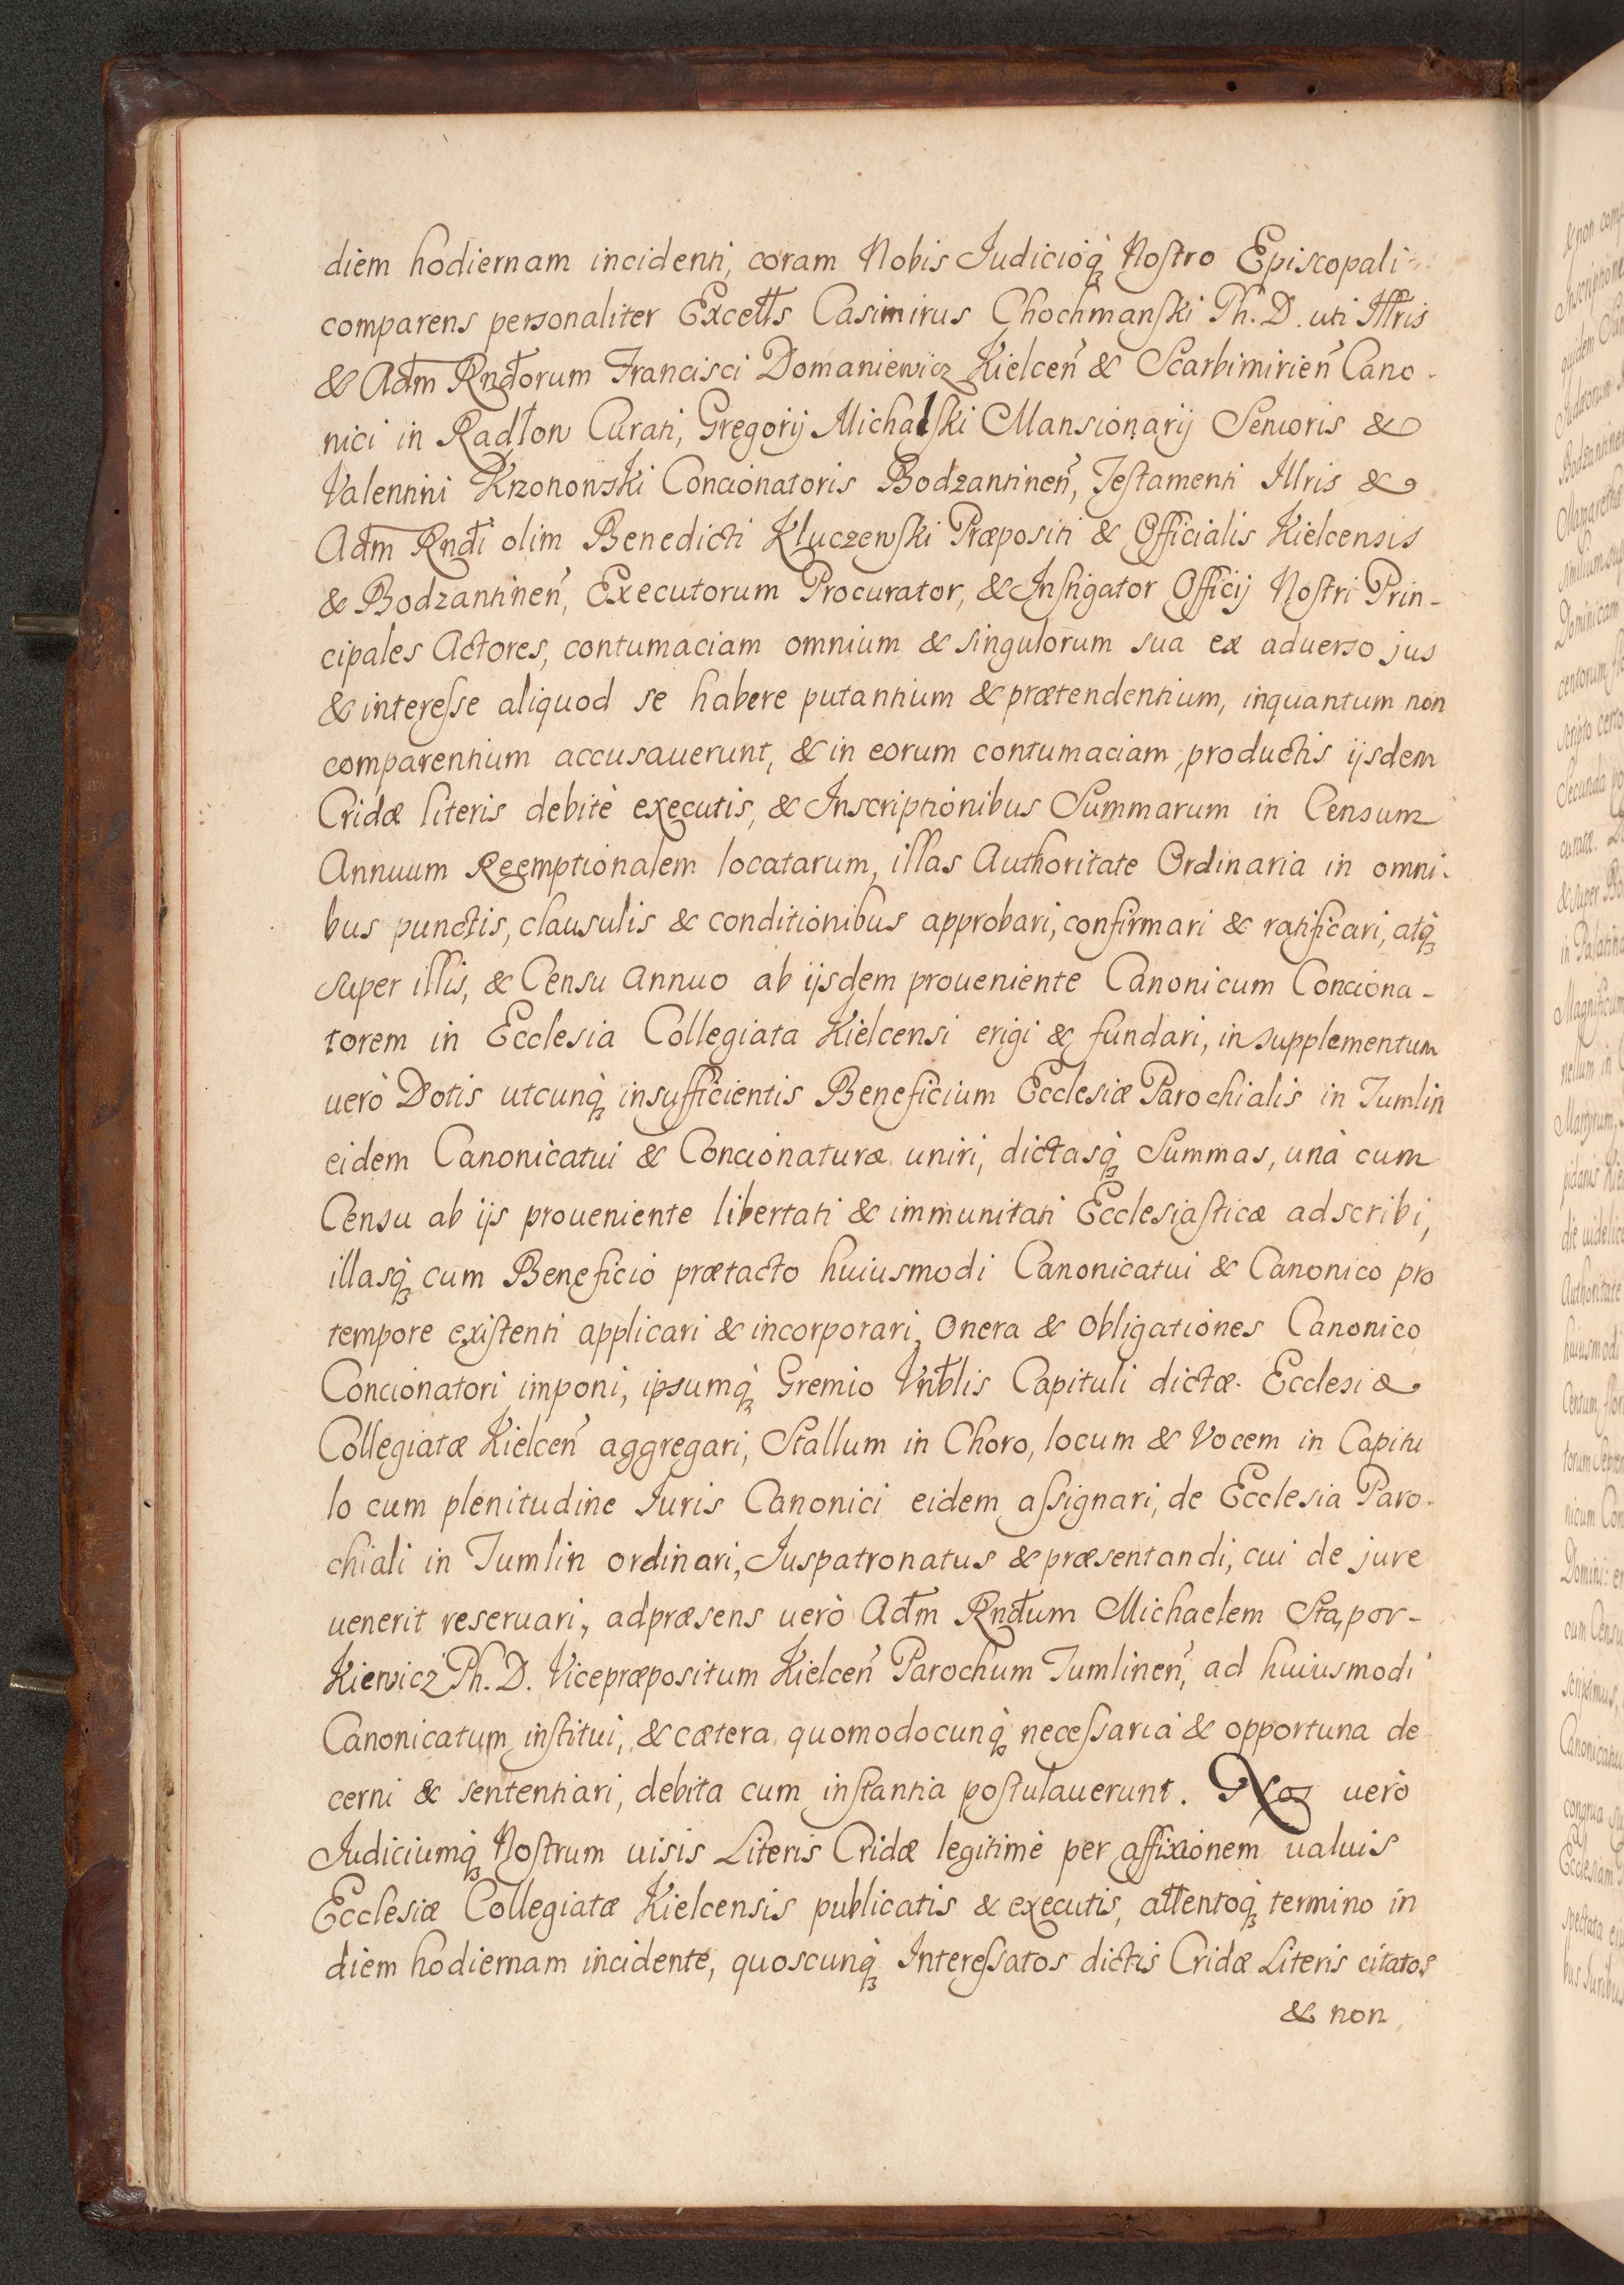 diem hodiernam incidenti, coram Nobis Judicioq̀ꝫ Nostro Episcopali
comparens personaliter Excełłs Casimirus Chochmanski Ph. D. uti Illris
& Adm̄ Rndorum Francisci Domaniewicz Kielceñ & Scarbimirieñ Cano-
nici in Radłow Curati, Gregorij Michalski Mansionarij Senioris &
Valentini Krzonowski Concionatoris Bodzantineñ, Testamenti Illris &
Adm̄ Rndi olim Benedicti Kluczewski Præpositi & Officialis Kielcensis
& Bodzantineñ, Executorum Procurator, & Instigator Officij Nostri Prin-
cipales Actores, contumaciam omnium & singulorum sua ex aduerso jus
& interesse aliquod se habere putantium & prætendentium, inquantum non
comparentium accusauerunt, & in eorum contumaciam, productis ijsdem
Cridæ literis debitè executis, & Inscriptionibus Summarum in Censum
Annuum Reemptionalem locatarum, illas Authoritate Ordinaria in omni-
bus punctis, clausulis & conditionibus approbari, confirmari & ratificari, atq̀ꝫ
super illis, & Censu annuo ab ijsdem proueniente Canonicum Conciona-
torem in Ecclesia Collegiata Kielcensi erigi & fundari, in supplementum
uerò Dotis utcunq̀ꝫ insufficientis Beneficium Ecclesiæ Parochialis in Tumlin
eidem Canonicatui & Concionaturæ uniri, dictasq̀ꝫ Summas, unà cum
Censu ab ijs proueniente libertati & immunitati Ecclesiasticæ adscribi,
illasq̀ꝫ cum Beneficio prætacto huiusmodi Canonicatui & Canonico pro
tempore existenti applicari & incorporari, Onera & Obligationes Canonico
Concionatori imponi, ipsumq̀ꝫ Gremio Vnblis Capituli dictæ Ecclesiæ
Collegiatæ Kielceñ aggregari, Stallum in Choro, locum & Vocem in Capitu
lo cum plenitudine Iuris Canonici eidem assignari, de Ecclesia Paro-
chiali in Tumlin ordinari, Juspatronatus & præsentandi, cui de jure
uenerit reseruari, adpræsens uerò Adm Rndum Michaelem Stapor-
Kiewicz Ph. D. Vicepræpositum Kielceñ Parochum Tumlineñ, ad huiusmodi
Canonicatum institui, & cætera quomodocunq̀ꝫ necessaria & opportuna de
cerni & sententiari, debita cum instantia postulauerunt. Nos uerò
Judiciumq̀ꝫ Nostrum uisis Literis Cridæ legitimè per affixionem ualuis
Ecclesiæ Collegiatæ Kielcensis publicatis & executis, attentoq̀ꝫ termino in
diem hodiernam incidente, quoscunq̀ꝫ Interessatos dictis Cridæ Literis citatos
& non